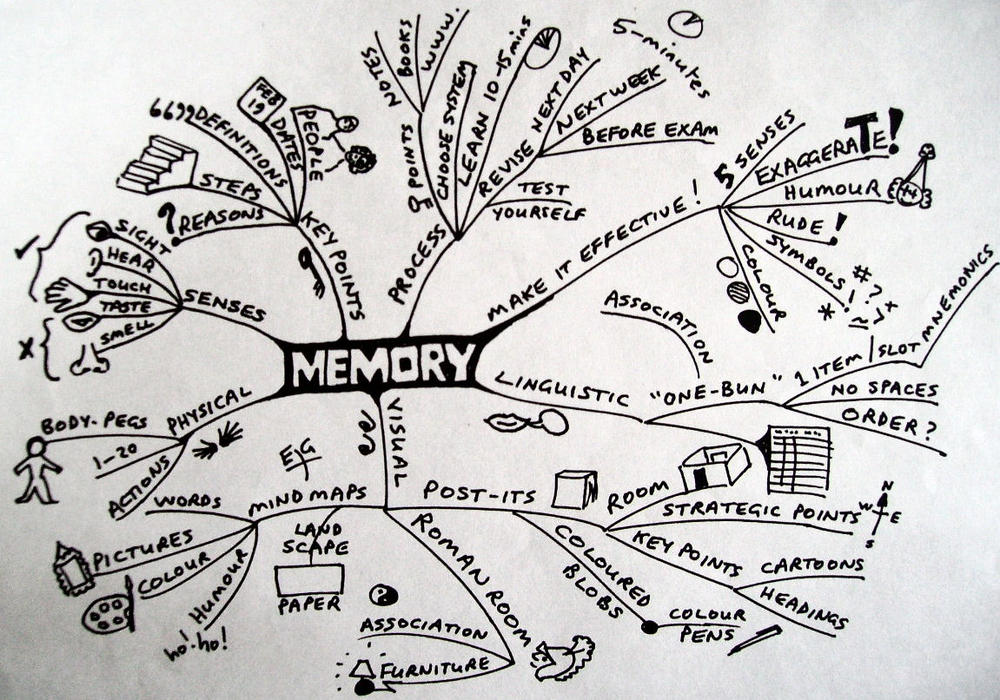 MEMORY
KEY POINTS
REASONS
?
STEPS
6699 DEFINITIONS
DATES
FEB
19
PEOPLE
PROCESS
POINTS
NOTES
BOOKS
WWW.
CHOOSE SYSTEM
LEARN 10-15 mins
REVISE
NEXT DAY
NEXT WEEK
BEFORE EXAM
5-minutes
TEST
YOURSELF
MAKE IT EFFECTIVE!
5 SENSES
EXAGGERATE!
HUMOUR
RUDE!
SYMBOLS
# ? ! *
COLOUR
LINGUISTIC
ASSOCIATION
"ONE-BUN"
1 ITEM / SLOT
MNEMONICS
NO SPACES
ORDER?
VISUAL
POST-ITS
ROOM
STRATEGIC POINTS
N
W E
S
KEY POINTS
CARTOONS
HEADINGS
COLOURED
BLOBS
COLOUR
PENS
ROMAN ROOM
ASSOCIATION
FURNITURE
MIND MAPS
EG
LAND
SCAPE
PAPER
WORDS
PICTURES
COLOUR
HUMOUR
ho! ho!
PHYSICAL
BODY-PEGS
1-20
ACTIONS
SENSES
SIGHT
HEAR
TOUCH
TASTE
SMELL
X